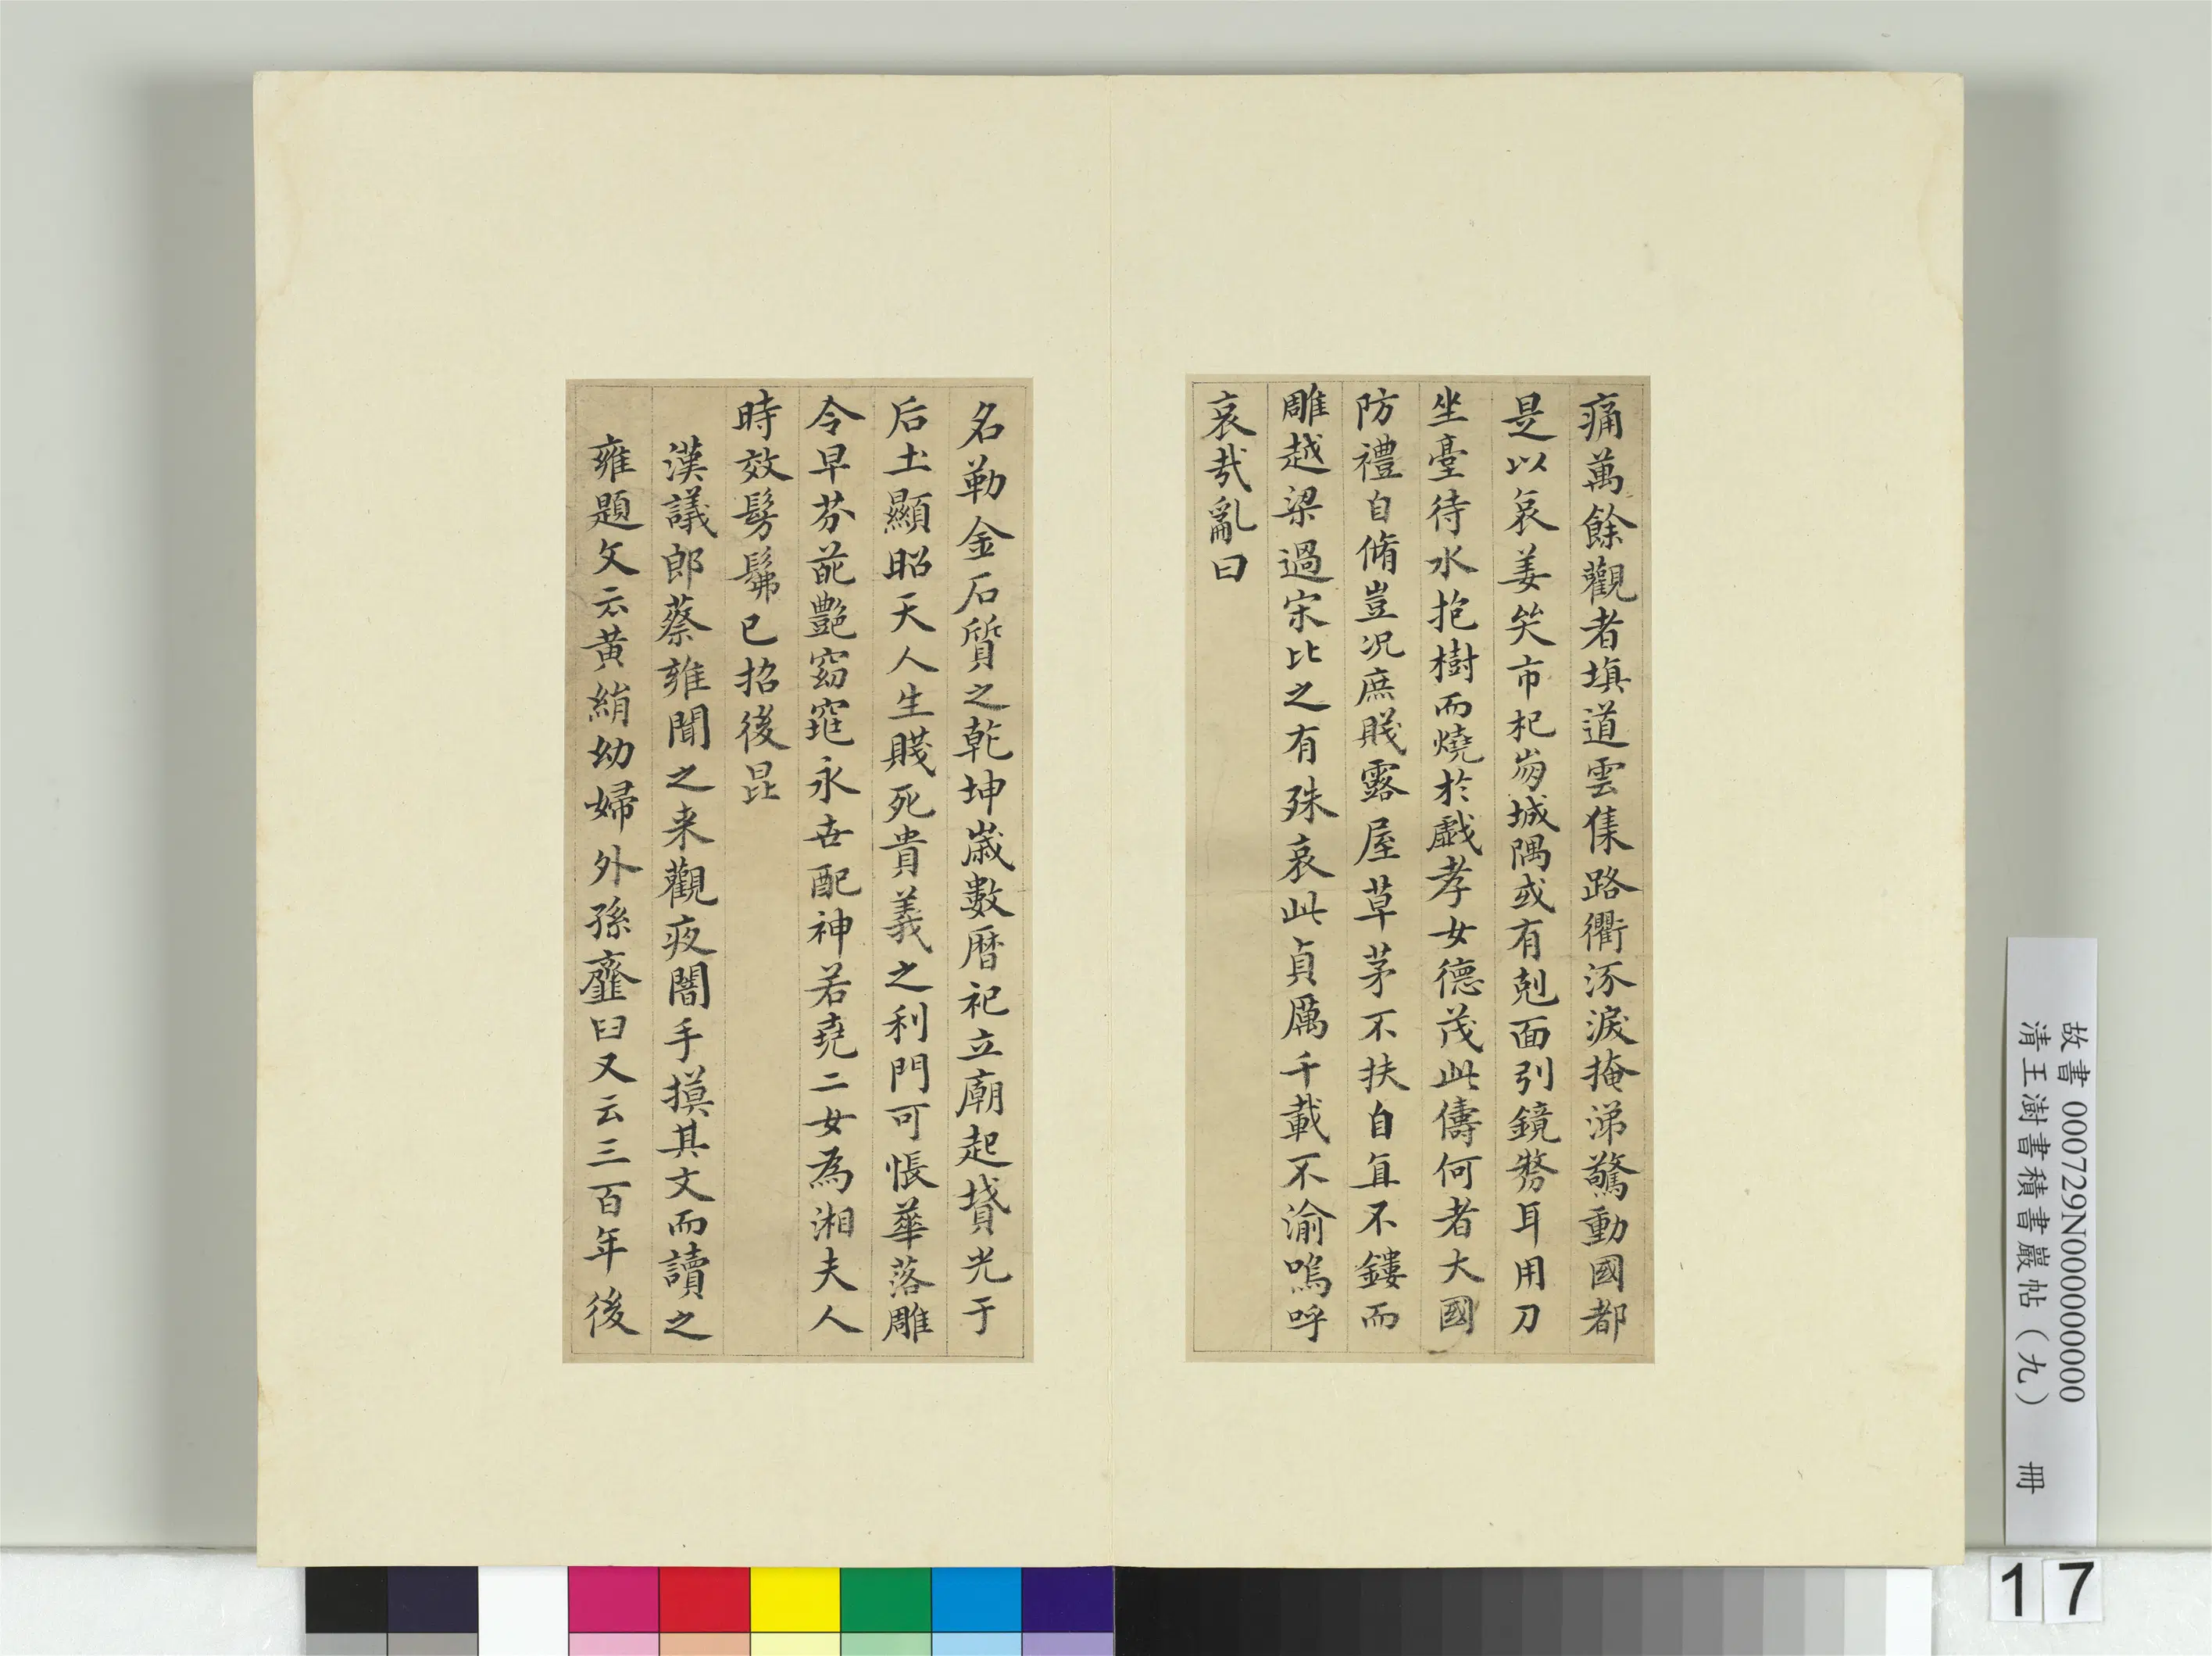 痛萬餘觀者塡道雲集路衢涿淚掩涕驚動國都
是以哀姜𡘜市杞崩城隅或有剋面引鏡剺耳用刀
坐臺待水抱樹而燒於戲孝女德茂此儔何者大國
防禮自脩豈況庶賤露屋草茅不扶自直不鏤而
雕越梁過宋比之有殊哀此貞厲千載不渝嗚呼
哀哉亂曰
名勒金石質之乾坤歲數曆祀立廟起墳光于
后土顯昭天人生賤死貴義之利門何悵華落雕
令早芬葩艷窈窕永世配神若堯二女為湘夫人
時效髣髴已招後昆
漢議郎蔡雍聞之来觀夜闇手摸其文而讀之
雍題文云黃絹幼婦外孫齏臼又云三百年後
故書 000729N000000000
清王澍書積書巖帖（九） 冊
17